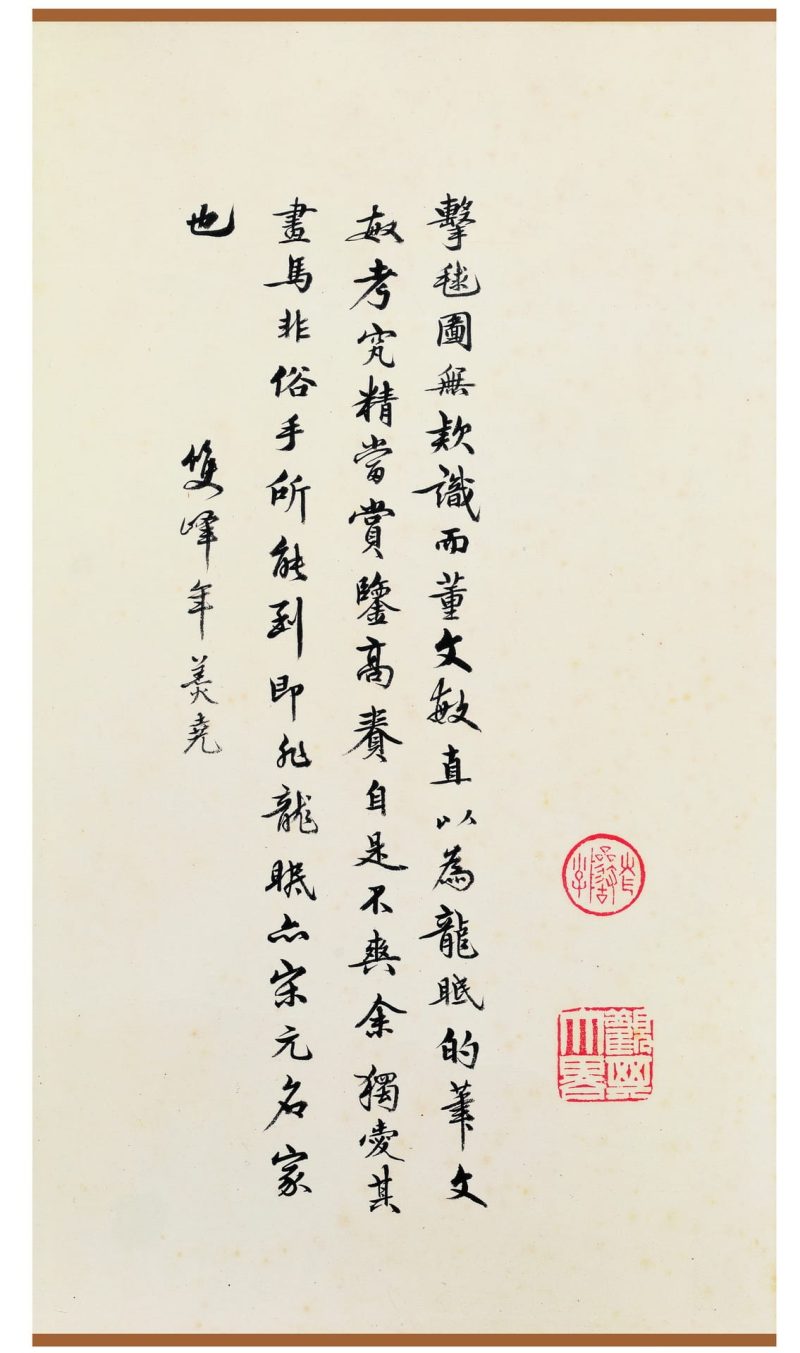 擊毬圖無欵識而董文敏直以為龍眠的筆文
敏考究精當賞鑒高賽自是不爽余獨愛其
畫馬非俗手所能到即非龍眠亦宋元名家
也
雙峰年羹堯